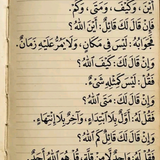 أَيْنَ، وَكَيْفَ، وَمَتَى، وَكَمْ.
فَإِنْ قَالَ لَكَ قَائِلٌ: أَيْنَ اللهُ؟
فَجَوَابُهُ: لَيْسَ فِي مَكَانٍ، وَلَا يَمُرُّ عَلَيْهِ زَمَانٌ.
وَإِنْ قَالَ لَكَ: كَيْفَ اللهُ؟
فَقُلْ: لَيْسَ كَمِثْلِهِ شَيْءٌ.
وَإِنْ قَالَ لَكَ: مَتَى اللهُ؟
فَقُلْ لَهُ: أَوَّلٌ بِلَا ابْتِدَاءٍ، وَآخِرٌ بِلَا انْتِهَاءٍ.
وَإِنْ قَالَ لَكَ قَائِلٌ: كَمِ اللهُ؟
قُلْ هُوَ اللهُ أَحَدٌ